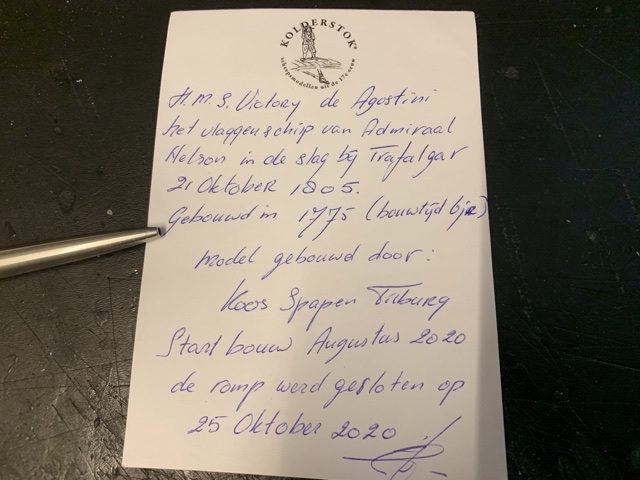 KOLDERSTOK
scheepsmodellen uit de 17e eeuw
H.M.S. Victory de Agostini
het vlaggenschip van Admiraal
Nelson in de slag bij Trafalgar
21 Oktober 1805.
Gebouwd in 1775 (bouwtijd 6jr)
model gebouwd door:
Koos Spapen Tilburg
Start bouw Augustus 2020
de romp werd gesloten op
25 Oktober 2020